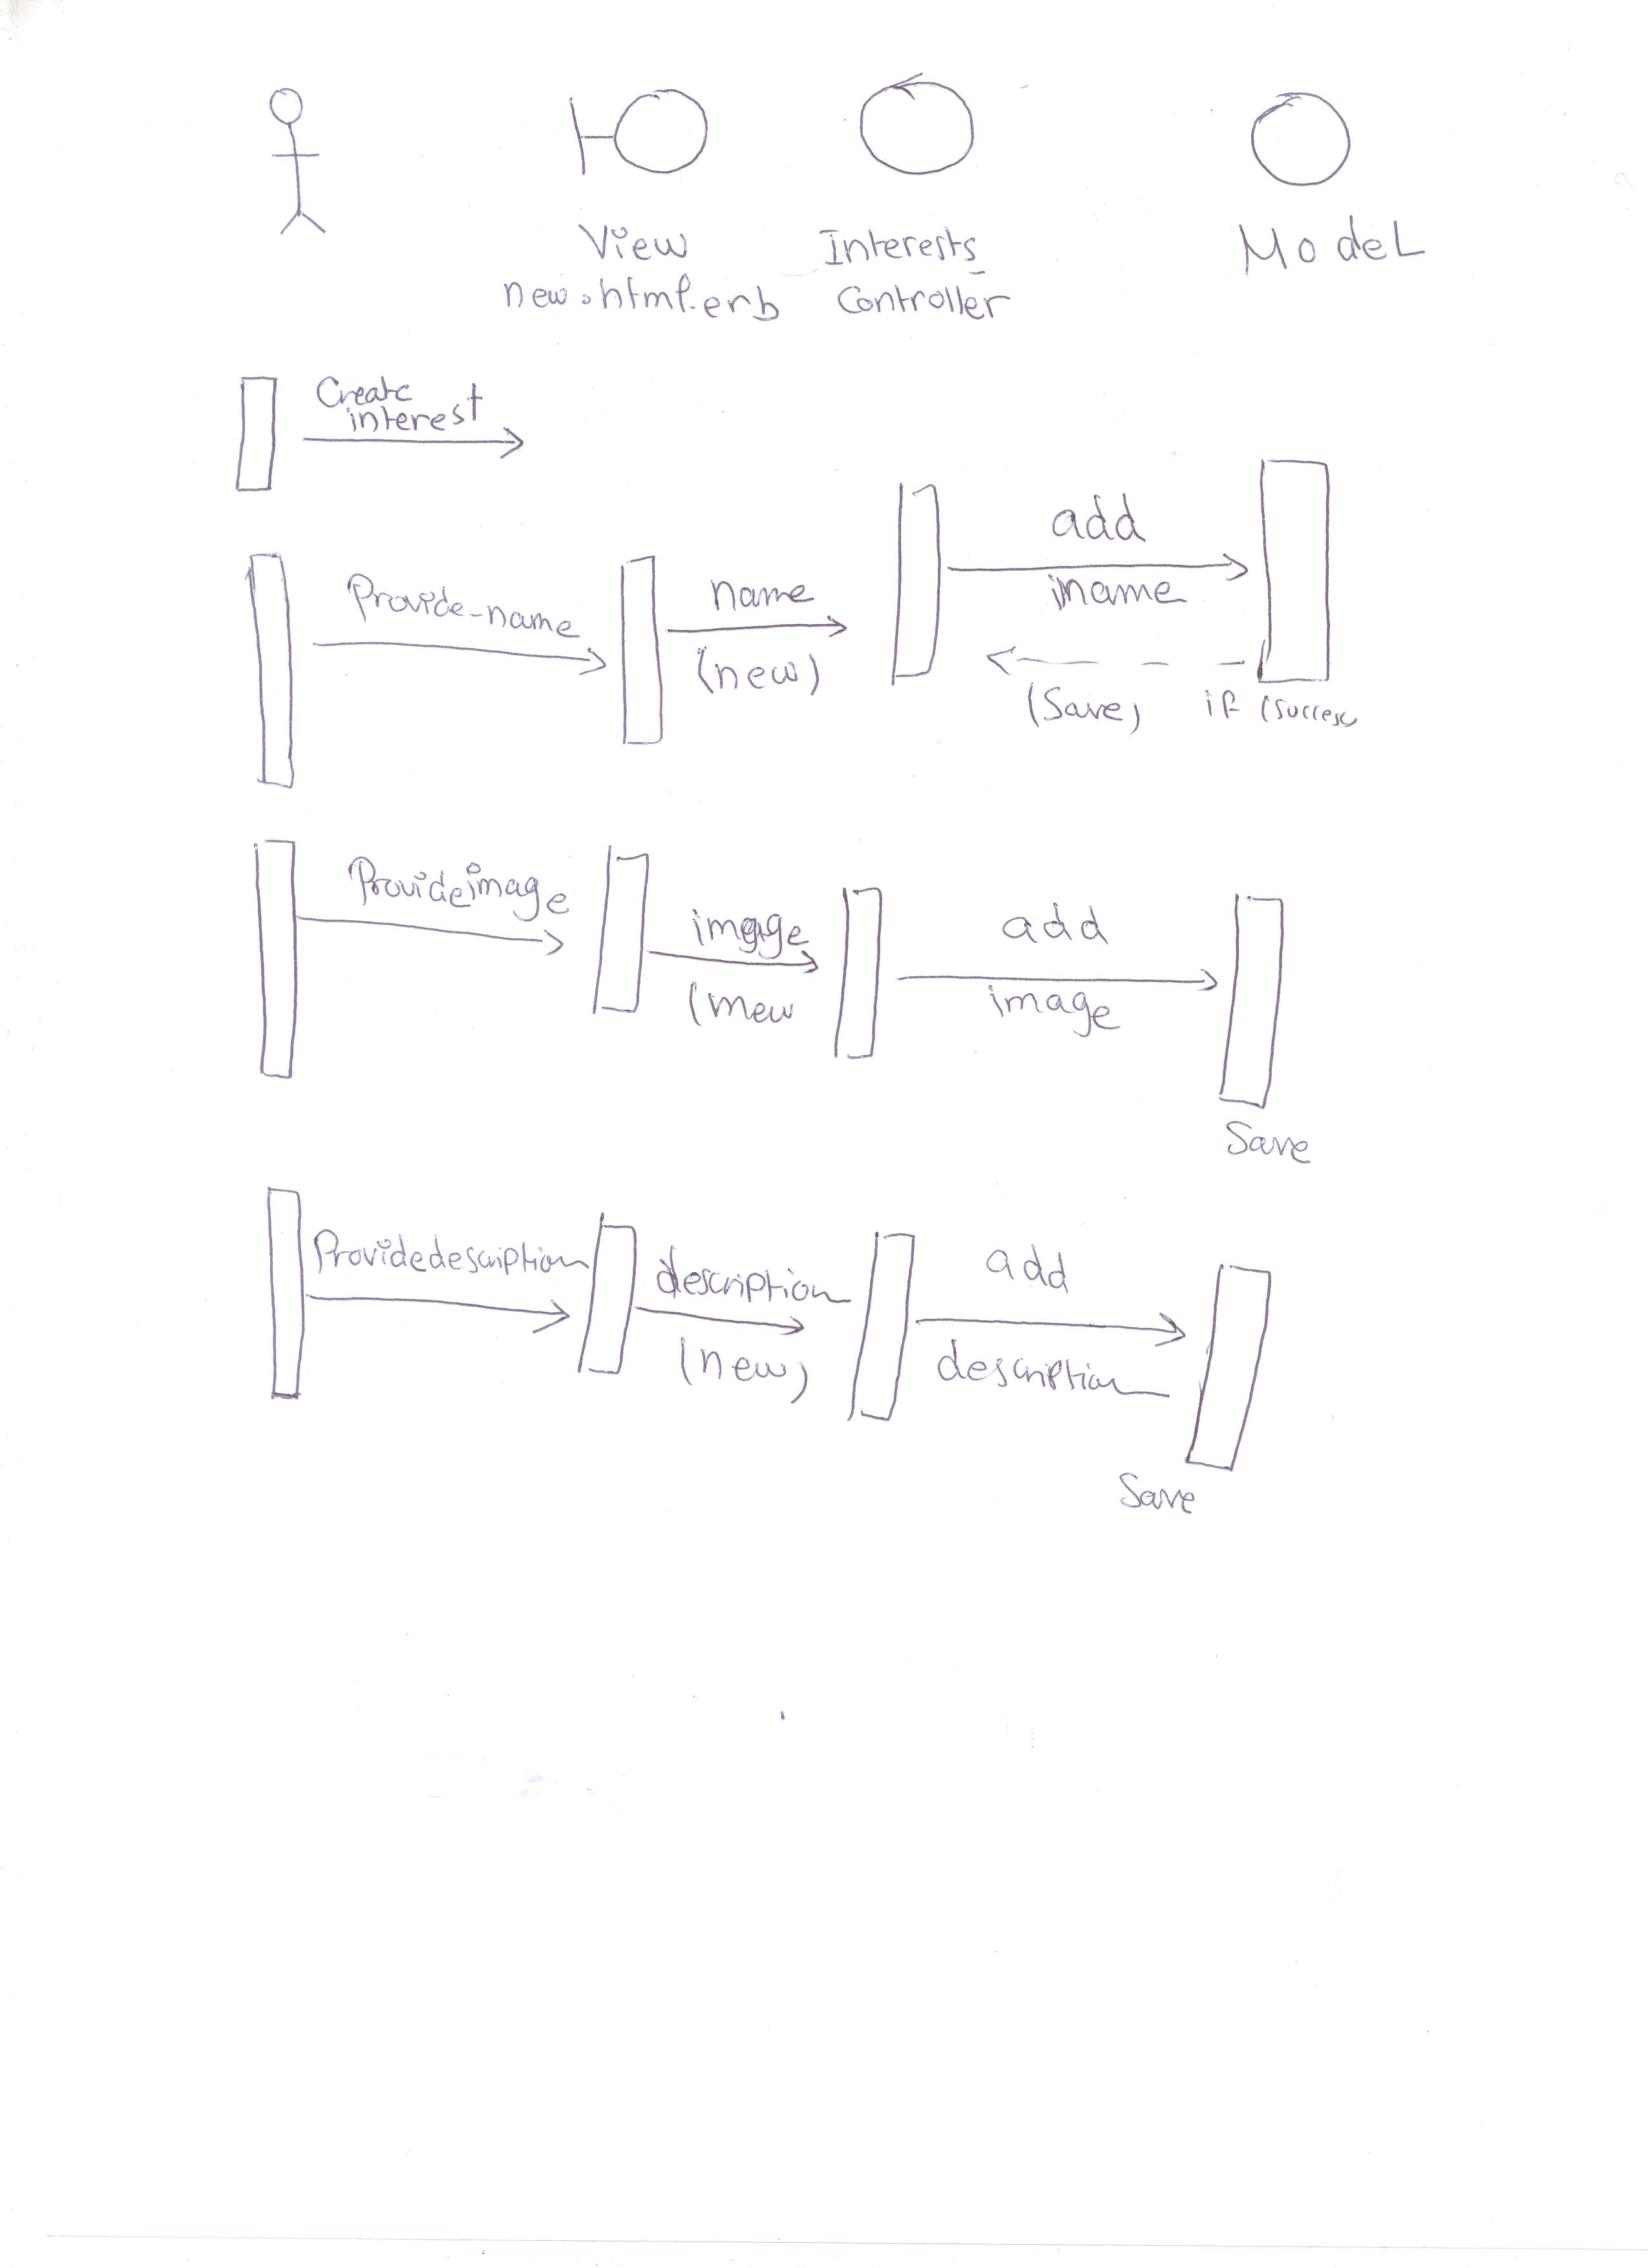 View
new.html.erb
Interests_
Controller
Model
Create
interest
Provide-name
name
(new)
add
name
(Save)
if (Success
Provideimage
image
(new
add
image
Save
Providedescription
description
(new)
add
description
Save